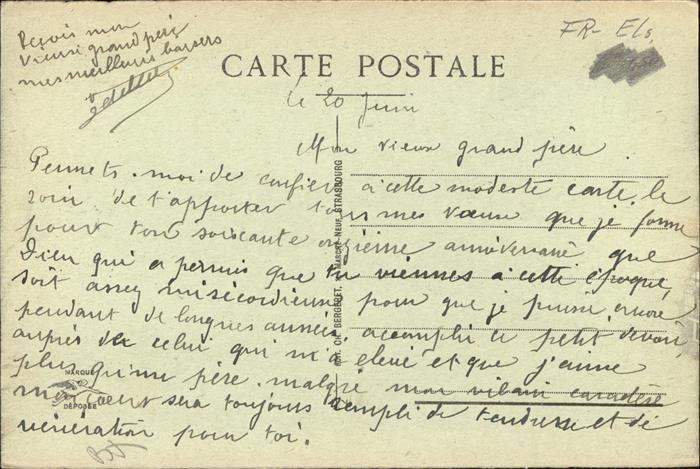 Reçois mon
vieux grand père
mes meilleurs baisers
FR- Els.
CARTE POSTALE
le 20 Juin
Mon vieux grand père.
Permets-moi de confier à cette modeste carte, le
soin de t'apporter tous mes vœux que je forme
pour ton soixante onzième anniversaire, que
Dieu qui a permis que tu viennes à cette époque,
soit assez miséricordieux pour que je puisse encore
pendant de longues années, accomplir ce petit devoir,
auprès de celui qui m'a élevé et que j'aime
plus qu'un père. malgré mon vilain caractère
mon cœur sera toujours rempli de tendresse et de
vénération pour toi.
MARQUE
DÉPOSÉE
CH. BERGERET, MARCHÉ-NEUF, STRASBOURG